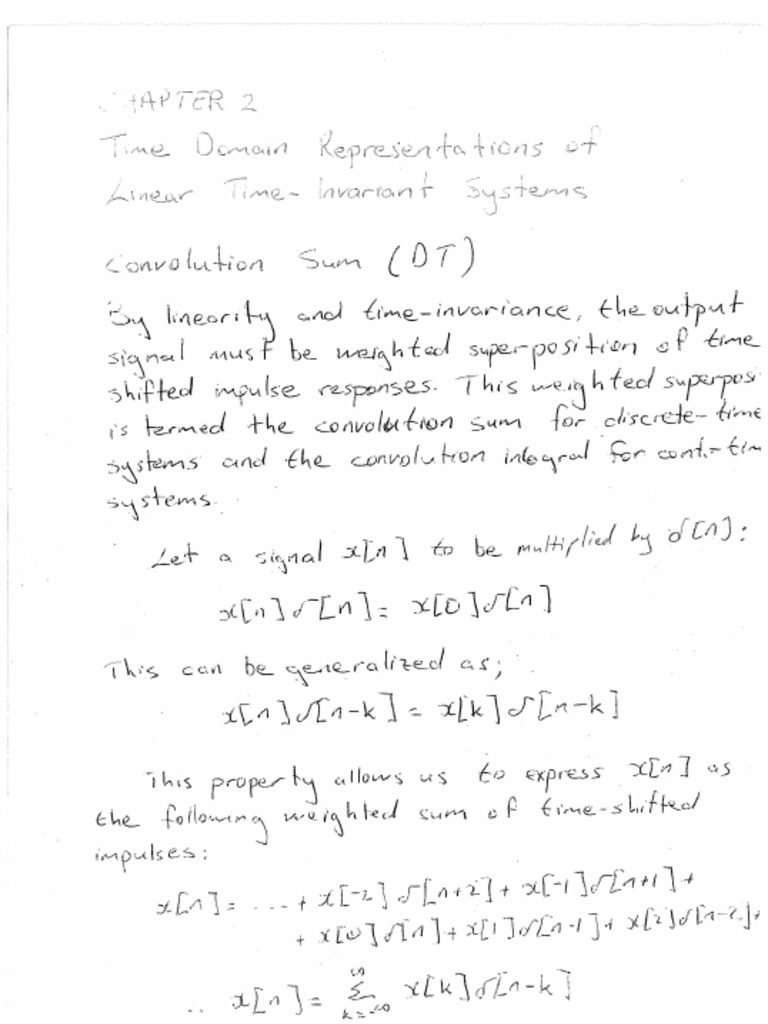 CHAPTER 2
Time Domain Representations of
Linear Time-Invariant Systems
Convolution Sum (DT)
By linearity and time-invariance, the output
signal must be weighted superposition of time
shifted impulse responses. This weighted superposi
is termed the convolution sum for discrete-time
systems and the convolution integral for cont.-tim
systems.
Let a signal x[n] to be multiplied by δ[n]:
x[n]δ[n] = x[0]δ[n]
This can be generalized as;
x[n]δ[n-k] = x[k]δ[n-k]
This property allows us to express x[n] as
the following weighted sum of time-shifted
impulses:
x[n] = ... + x[-2]δ[n+2] + x[-1]δ[n+1] +
+ x[0]δ[n] + x[1]δ[n-1] + x[2]δ[n-2] +
∴ x[n] = ∑_{k=-∞}^{∞} x[k]δ[n-k]